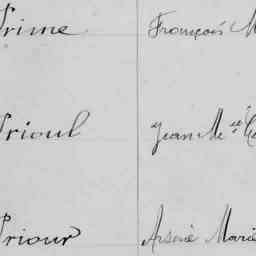 Prime François M
Prioul Jean M.ie
Priour Arsène Marie